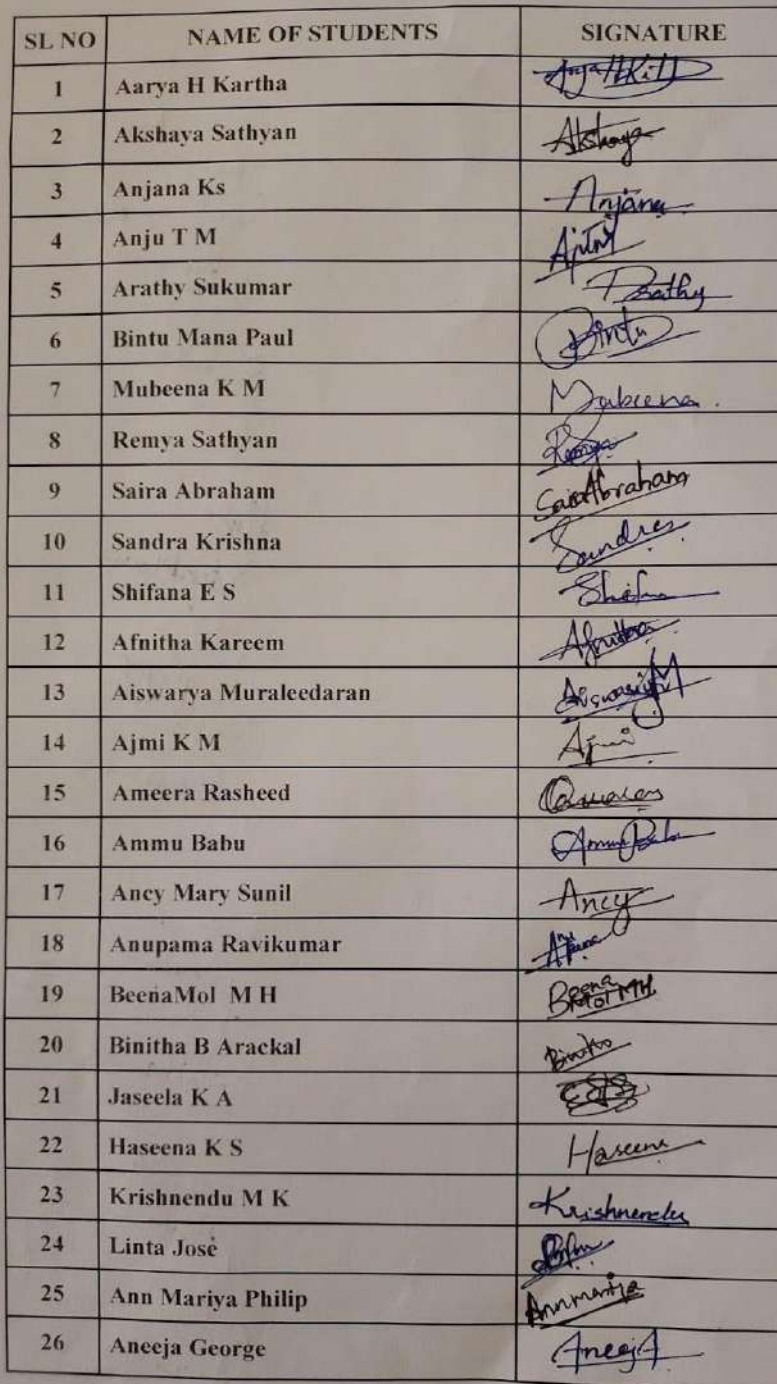 SL NO NAME OF STUDENTS SIGNATURE
1 Aarya H Kartha
2 Akshaya Sathyan Akshaya
3 Anjana Ks Anjana
4 Anju T M
5 Arathy Sukumar
6 Bintu Mana Paul Bintu
7 Mubeena K M Mubeena
8 Remya Sathyan Remya
9 Saira Abraham Saira Abraham
10 Sandra Krishna Sandra
11 Shifana E S
12 Afnitha Kareem Afnitha
13 Aiswarya Muraleedaran
14 Ajmi K M Ajmi
15 Ameera Rasheed
16 Ammu Babu
17 Ancy Mary Sunil Ancy
18 Anupama Ravikumar
19 BeenaMol M H Beena
Mol MH
20 Binitha B Arackal
21 Jaseela K A
22 Haseena K S Haseena
23 Krishnendu M K Krishnendu
24 Linta Jose
25 Ann Mariya Philip Annmariya
26 Aneeja George AneejA